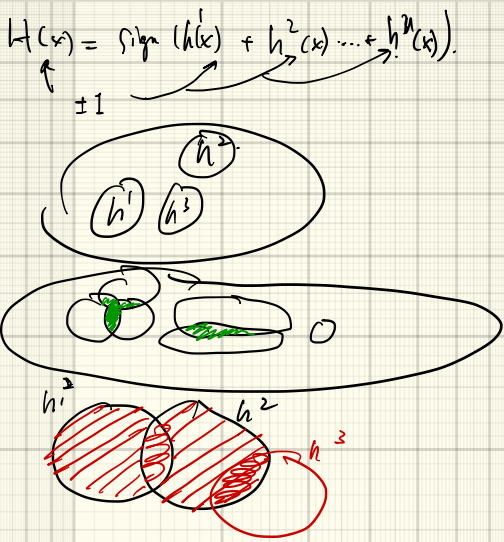 H(x) = Sign (h¹(x) + h²(x) .... + hᴺ(x)).
±1
h²
h¹ h³
h¹ h²
h³